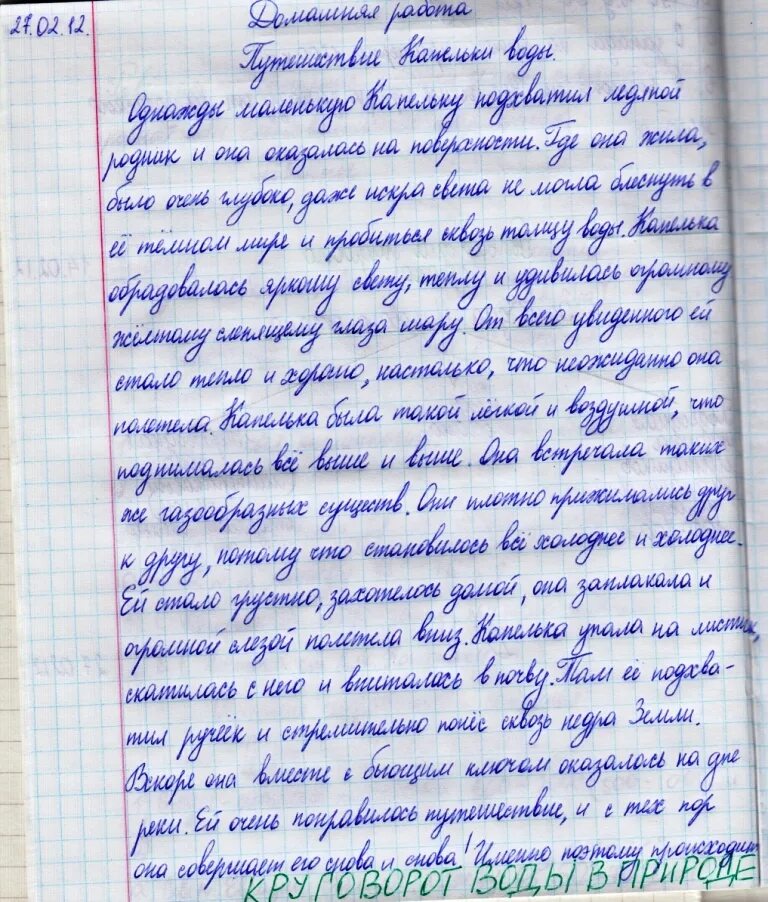 27.02.12. Домашняя работа
Путешествие Капельки воды.
Однажды маленькую Капельку подхватил ледяной
родник и она оказалась на поверхности. Где она жила,
было очень глубоко, даже искра света не могла блеснуть в
её тёмном мире и пробиться сквозь толщу воды. Капелька
обрадовалась яркому свету, теплу и удивилась огромному
жёлтому слепящему глаза шару. От всего увиденного ей
стало тепло и хорошо, настолько, что неожиданно она
полетела. Капелька была такой лёгкой и воздушной, что
поднималась всё выше и выше. Она встречала таких
же газообразных существ. Они плотно прижимались друг
к другу, потому что становилось всё холоднее и холоднее.
Ей стало грустно, захотелось домой, она заплакала и
огромной слезой полетела вниз. Капелька упала на листик,
скатилась с него и впиталась в почву. Там её подхва-
тил ручеёк и стремительно понёс сквозь недра Земли.
Вскоре она вместе с бьющим ключом оказалась на дне
реки. Ей очень понравилось путешествие, и с тех пор
она совершает его снова и снова! Именно поэтому происходит
КРУГОВОРОТ ВОДЫ В ПРИРОДЕ